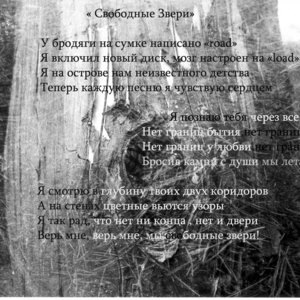 « Свободные Звери»
У бродяги на сумке написано «road»
Я включил новый диск, мозг настроен на «load»
Я на острове нам неизвестного детства
Теперь каждую песню я чувствую сердцем
Я познаю тебя через все
Нет границ бытия нет грани
Нет границ у любви нет гран
Бросив камни с души мы лета
Я смотрю в глубину твоих двух коридоров
А на стенах цветные вьются узоры
Я так рад, что нет ни конца , нет и двери
Верь мне, верь мне, мы свободные звери!